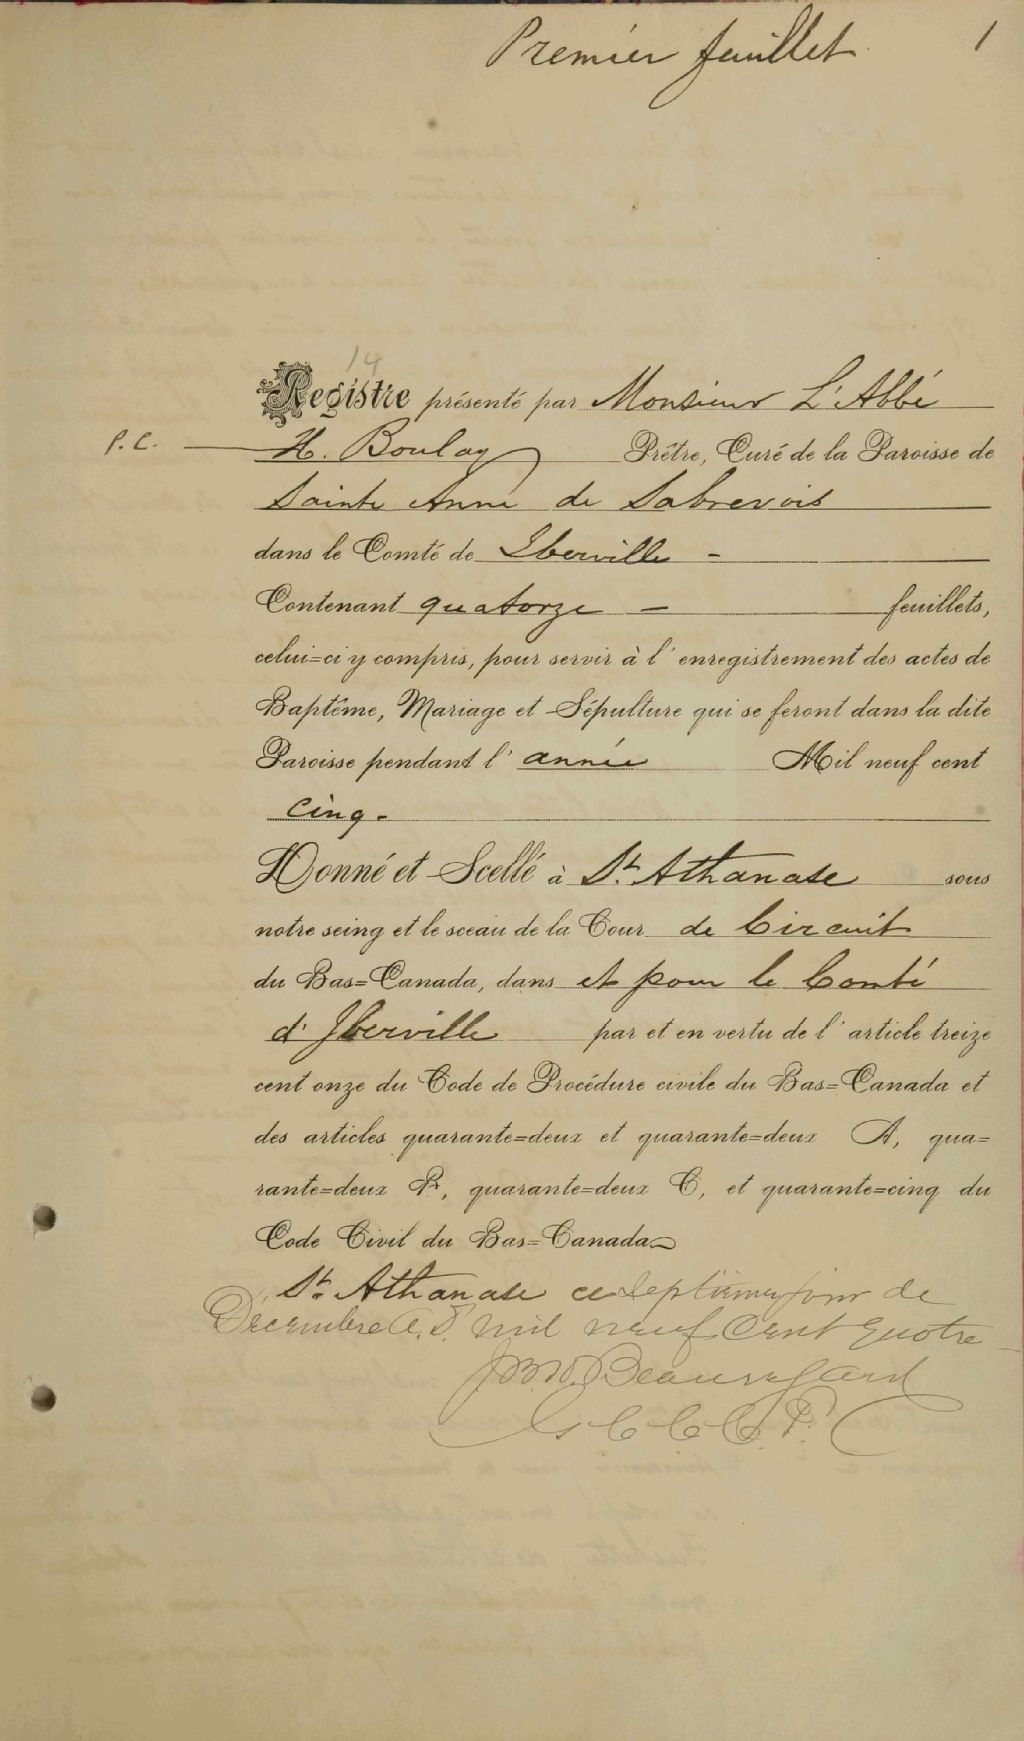 Premier feuillet
1
14
Registre présenté par Monsieur L'Abbé
P.C. H. Boulay Prêtre, Curé de la Paroisse de
Sainte Anne de Sabrevois
dans le Comté de Iberville -
Contenant quatorze - feuillets,
celui=ci y compris, pour servir à l'enregistrement des actes de
Baptême, Mariage et Sépulture qui se feront dans la dite
Paroisse pendant l'année Mil neuf cent
cinq.
Donné et Scellé à St. Athanase sous
notre seing et le sceau de la Cour de Circuit
du Bas=Canada, dans et pour le Comté
d'Iberville par et en vertu de l'article treize
cent onze du Code de Procédure civile du Bas=Canada et
des articles quarante=deux et quarante=deux A, qua=
rante=deux B, quarante=deux C, et quarante=cinq du
Code Civil du Bas=Canada
St. Athanase ce septième jour de
Décembre A.D. mil neuf cent quatre
Beauregard
C C C